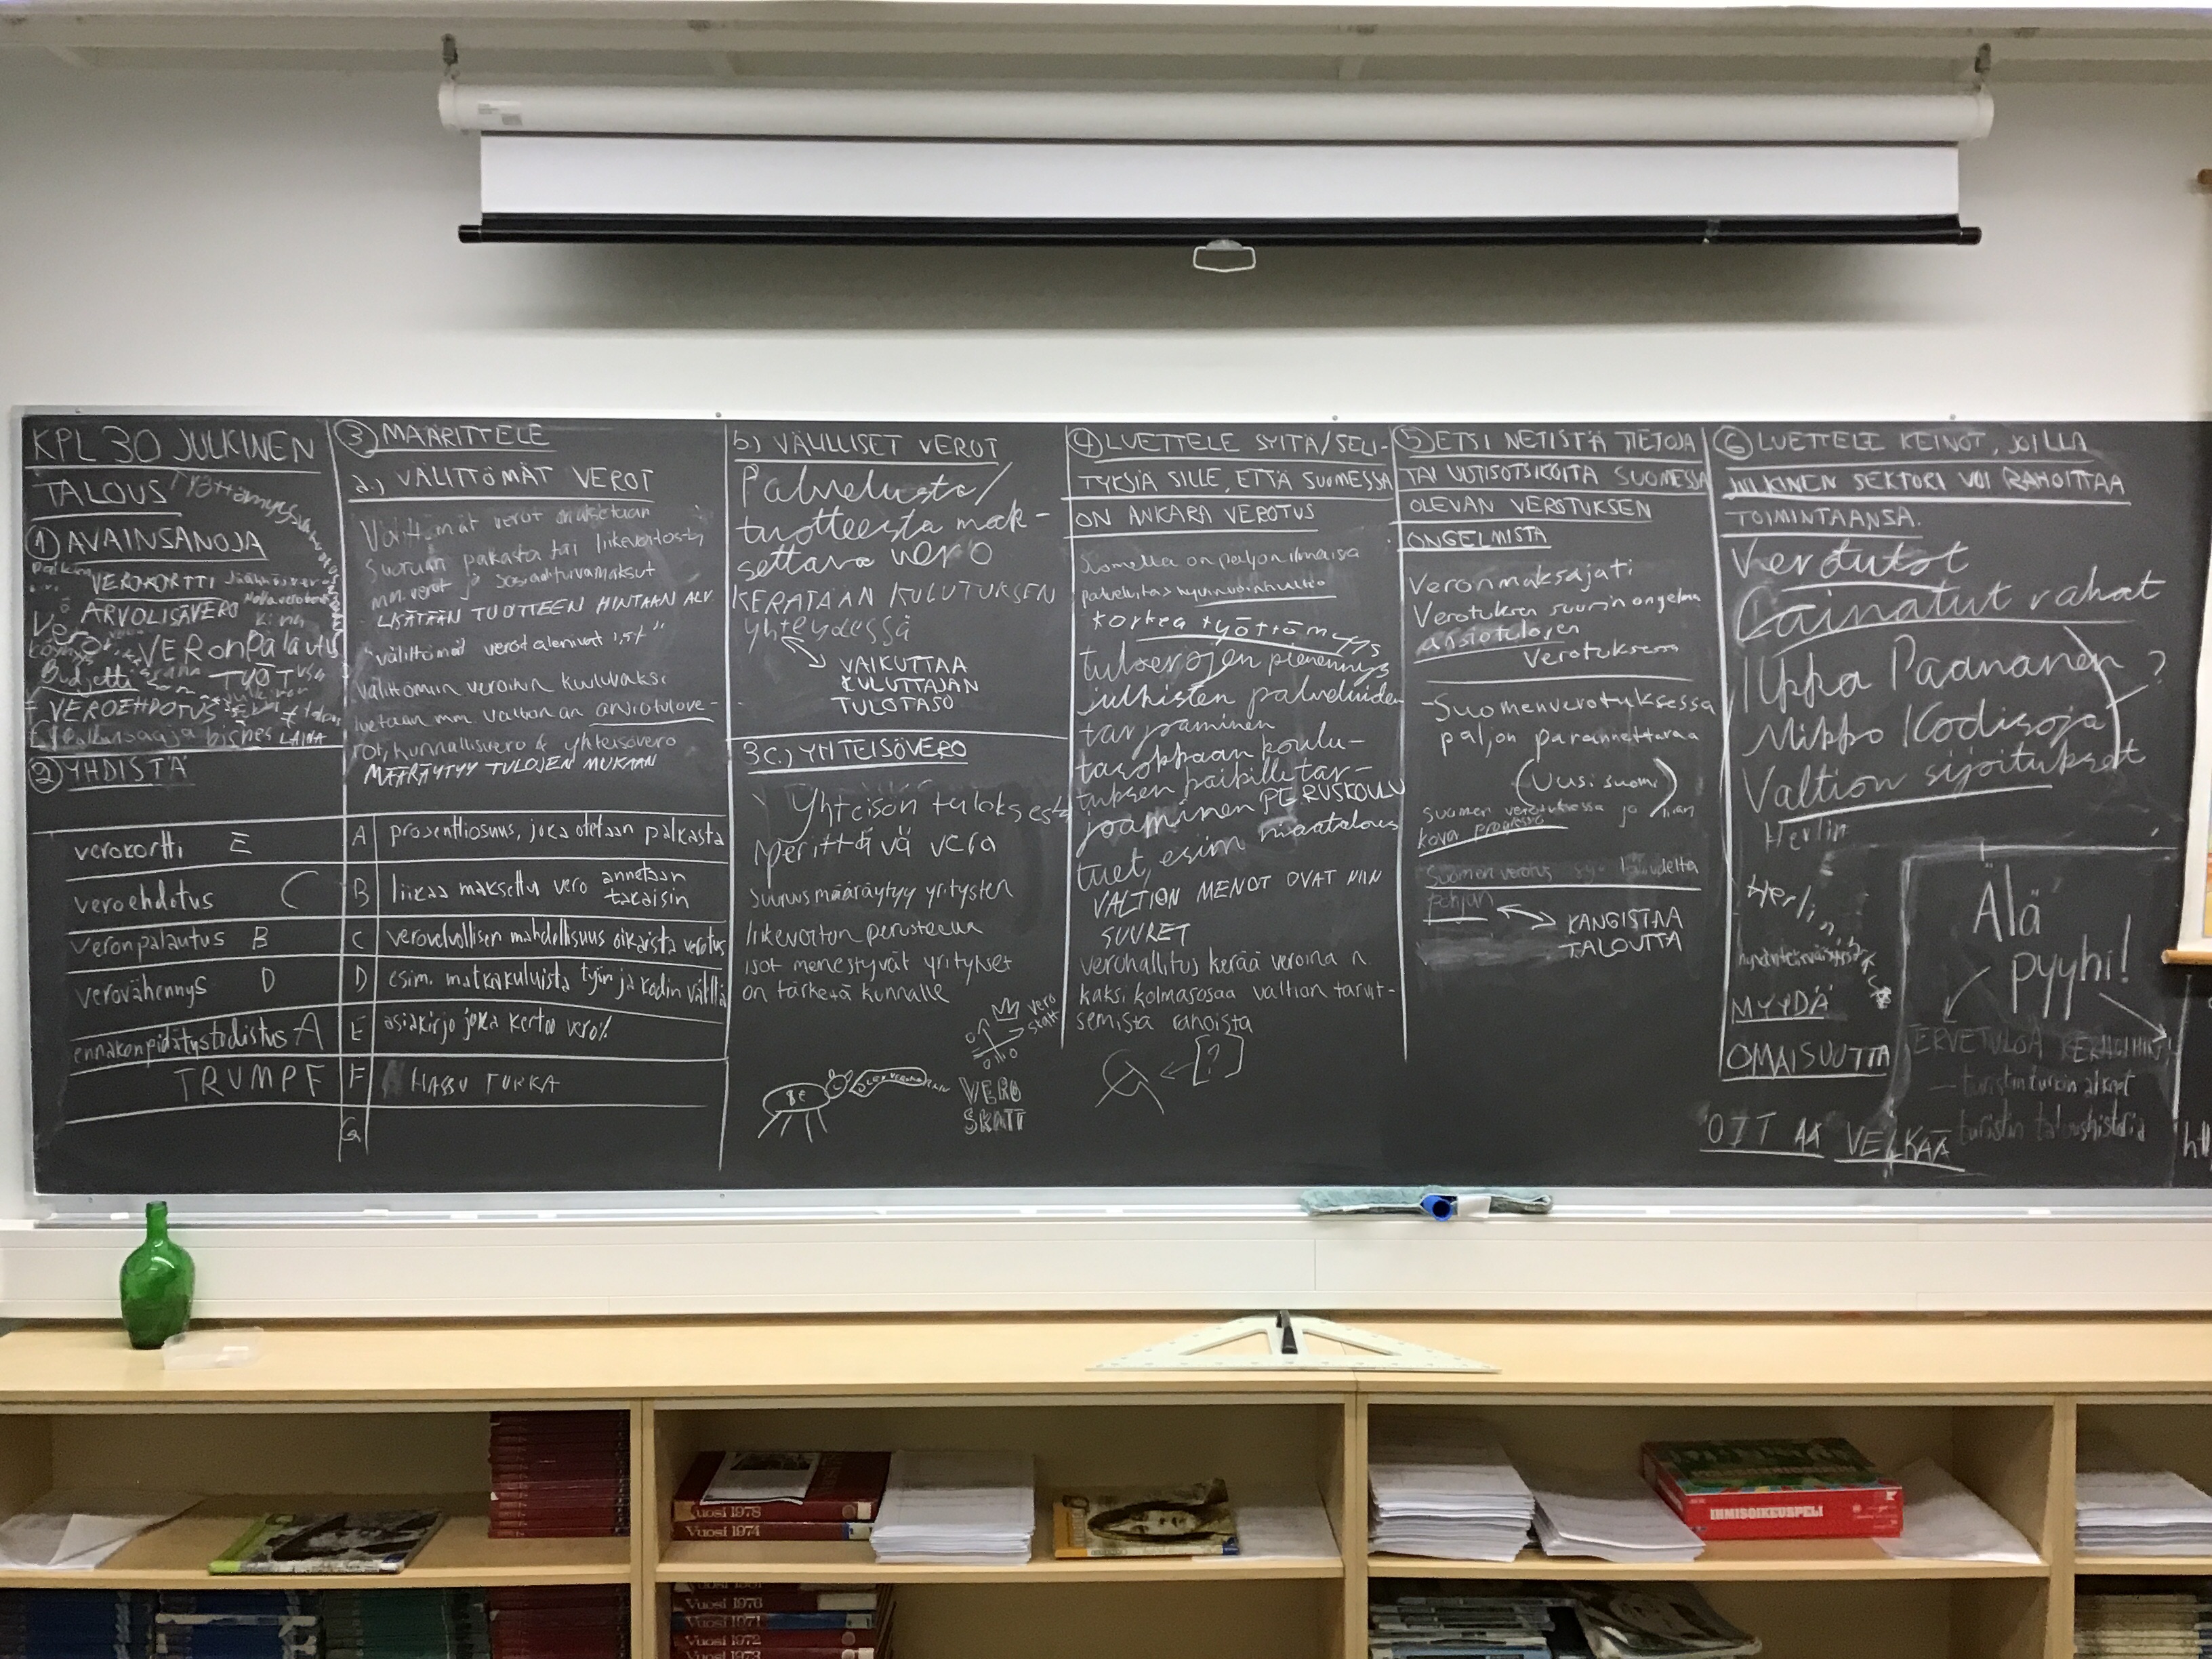 KPL 30 JULKINEN
TALOUS
① AVAINSANOJA
VEROKORTTI
ARVOLISÄVERO
Vero
VEROnpalautus
Budjetti
TYÖ
VEROEHDOTUS
bisnes LAINA
② YHDISTÄ
verokortti E
veroehdotus C
veronpalautus B
verovähennys D
ennakonpidätystodistus A
TRUMP F
③ MÄÄRITTELE
a.) VÄLITTÖMÄT VEROT
Välittömät verot maksetaan
suoraan palkasta tai liikevoitosta
mm. verot ja sosiaaliturvamaksut
LISÄTÄÄN TUOTTEEN HINTAAN ALV.
"välittömät verot alenivat
välittömiin veroihin kuuluvaksi
luetaan mm. valtion an ansiotulove-
rot, kunnallisvero & yhteisövero
MÄÄRÄYTYY TULOJEN MUKAAN
A prosenttiosuus, joka otetaan palkasta
B liikaa maksettu vero annetaan takaisin
C verovelvollisen mahdollisuus oikaista verotus
D esim. matkakuluista työn ja kodin välillä
E asiakirja joka kertoo vero%
F HASSU TUKKA
G
b) VÄLILLISET VEROT
Palvelusta/
tuotteesta mak-
settava vero
KERÄTÄÄN KULUTUKSEN
yhteydessä
VAIKUTTAA
KULUTTAJAN
TULOTASO
3c.) YHTEISÖVERO
Yhteisön tuloksesta
perittävä vero
suuruus määräytyy yritysten
liikevoiton perusteella
isot menestyvät yritykset
on tärkeitä kunnalle
vero
skatt
VERO
SKATT
④ LUETTELE SYITÄ/SELI-
TYKSIÄ SILLE, ETTÄ SUOMESSA
ON ANKARA VEROTUS
Suomella on paljon ilmaisia
palveluita > hyvinvointivaltio
korkea työttömyys
tuloerojen pienennys
julkisten palveluiden
tarjoaminen
tasokkaan koulu-
tuksen kaikille tar-
joaminen PERUSKOULU
tuet, esim maatalous
VALTION MENOT OVAT NIIN
SUURET
verohallitus kerää veroina n.
kaksi kolmasosaa valtion tarvit-
semista rahoista
?
⑤ ETSI NETISTÄ TIETOJA
TAI UUTISOTSIKOITA SUOMESSA
OLEVAN VEROTUKSEN
ONGELMISTA
Veronmaksajat:
Verotuksen suurin ongelma
ansiotulojen
verotuksessa
- Suomen verotuksessa
paljon parannettavaa
(Uusi suomi)
Suomen verotuksessa jo liian
kova progressio
Suomen verotus taloudelta
pohjan
KANGISTAA
TALOUTTA
⑥ LUETTELE KEINOT, JOILLA
JULKINEN SEKTORI VOI RAHOITTAA
TOIMINTAANSA.
Verotulot
Lainatut rahat
Ilkka Paananen
Mikko Kodisoja ?
Valtion sijoitukset
Herlin
Herlin
MYYDÄ
OMAISUUTTA
OTTAA VELKAA
Älä
pyyhi!
TERVETULOA KERHOIHIN!
— turistin turvin aikaat
turistin taloushistoria
Vuosi 1978
Vuosi 1974
Vuosi 1976
Vuosi 1971
Vuosi 1972
Vuosi 1973
IHMISOIKEUSPELI